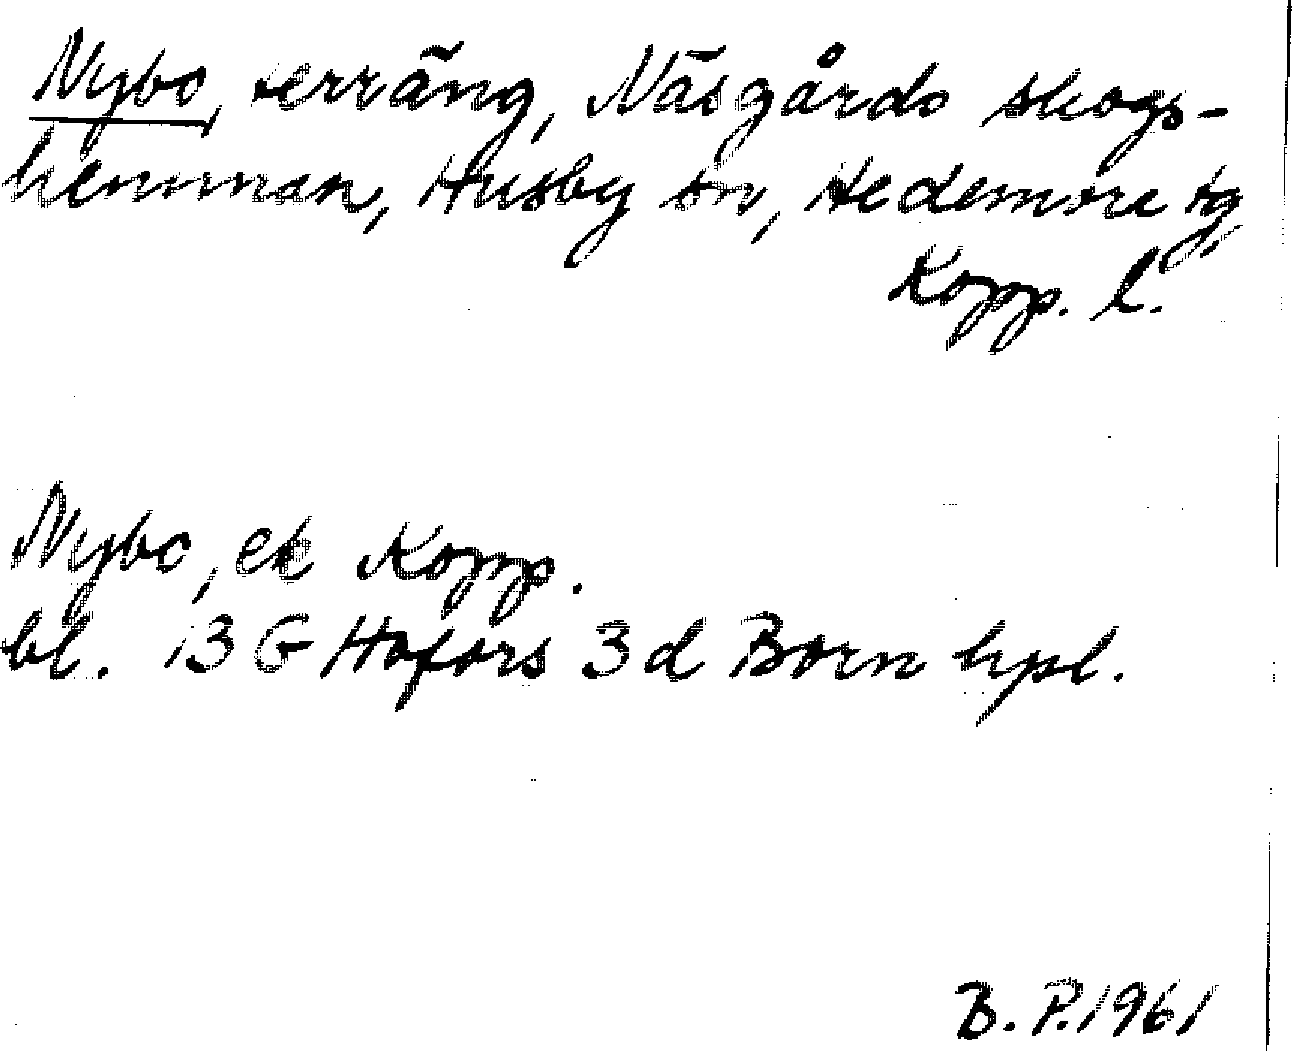 Nybo, terräng, Näsgårds skogs-
hemman, Husby sn, Hedemora tg,
Kopp. l.
Nybo, ek Kopp.
bl. 13 G Hofors 3 d Born hpl.
B. P. 1961